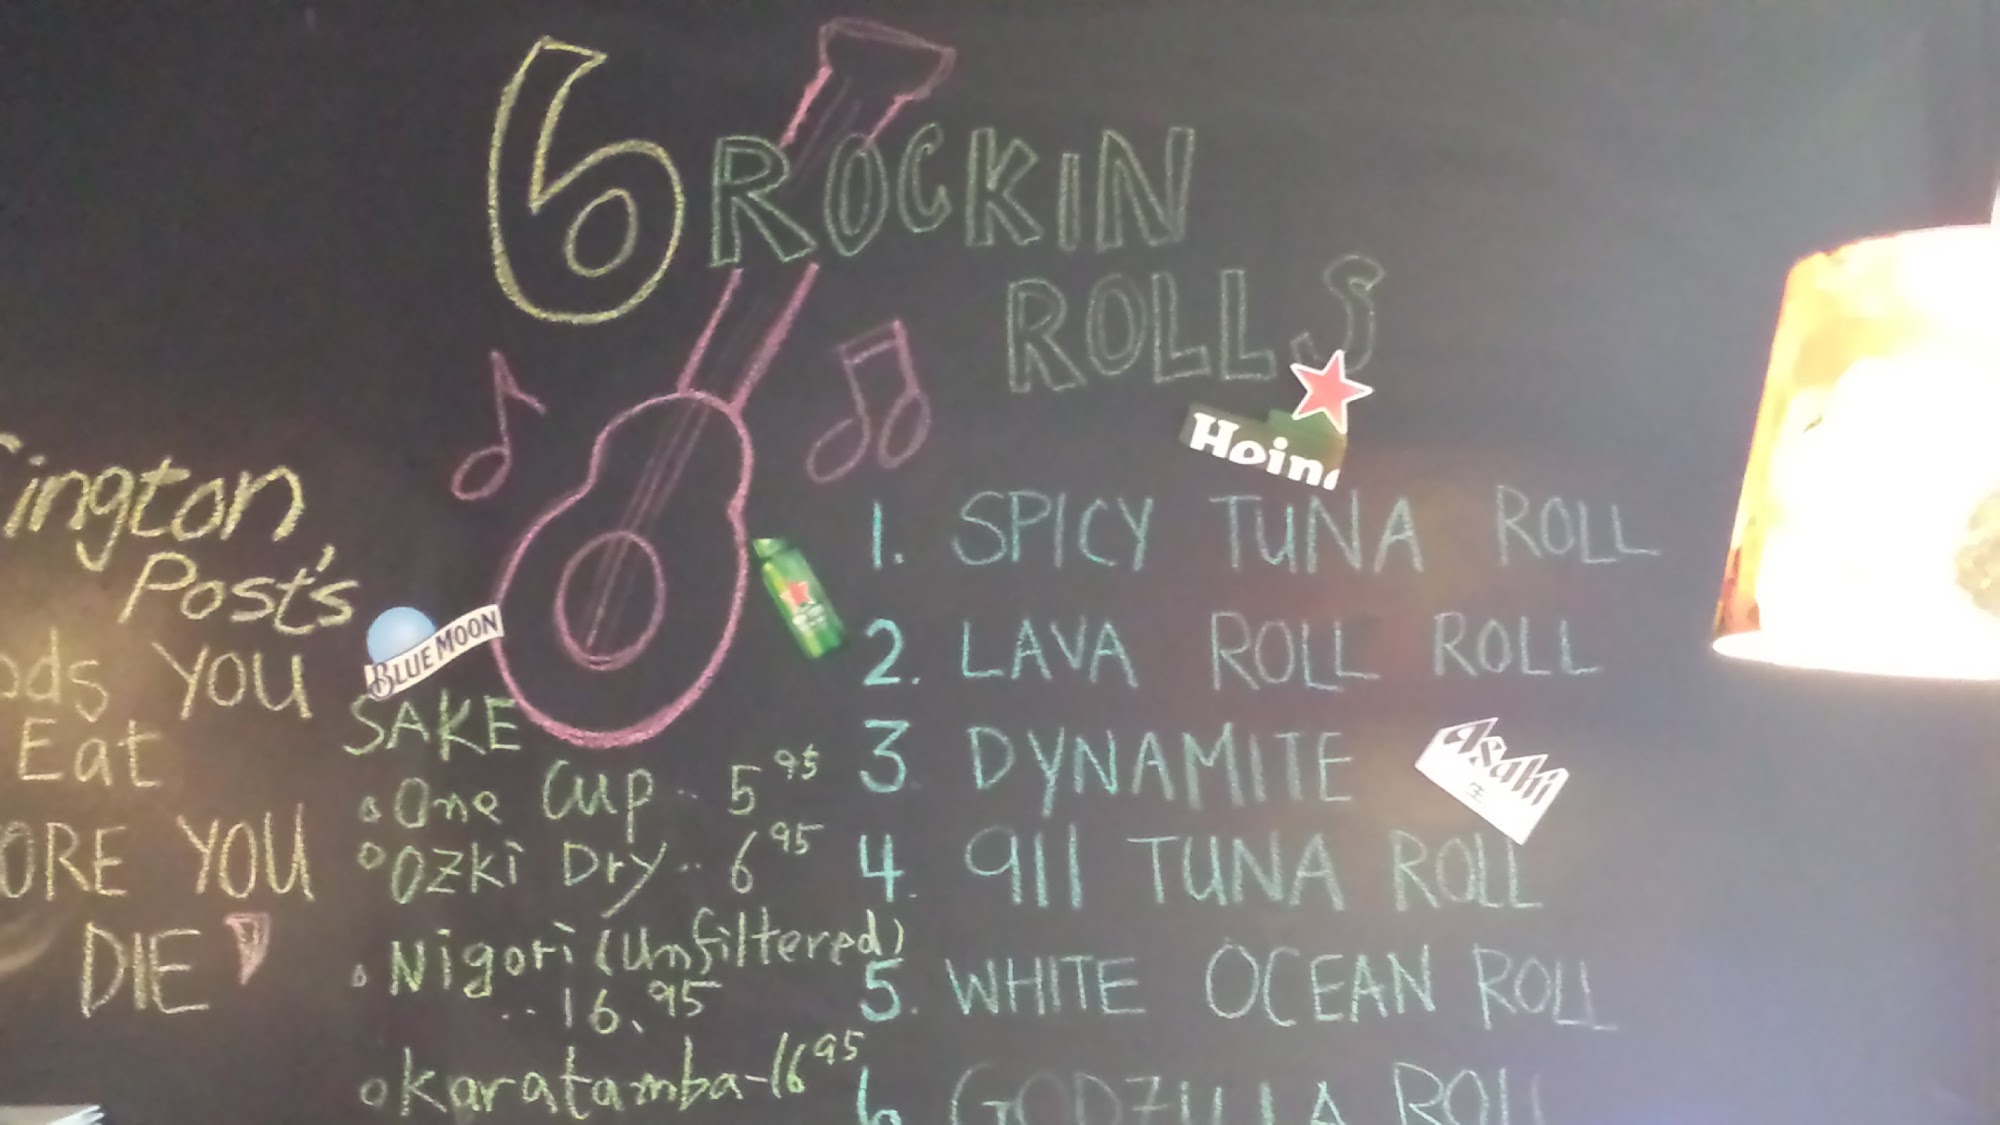 6 ROCKIN
ROLLS
Hein
1. SPICY TUNA ROLL
2. LAVA ROLL ROLL
3 DYNAMITE
Asahi
生
4. 911 TUNA ROLL
5. WHITE OCEAN ROLL
6 GODZILLA ROLL
ington
Post's
ods YOU
Eat
ORE YOU
DIE
BLUE MOON
SAKE
One Cup.. 5 95
OZKi Dry.. 6 95
Nigori (Unfiltered)
.. 16.95
Karatamba-16 95